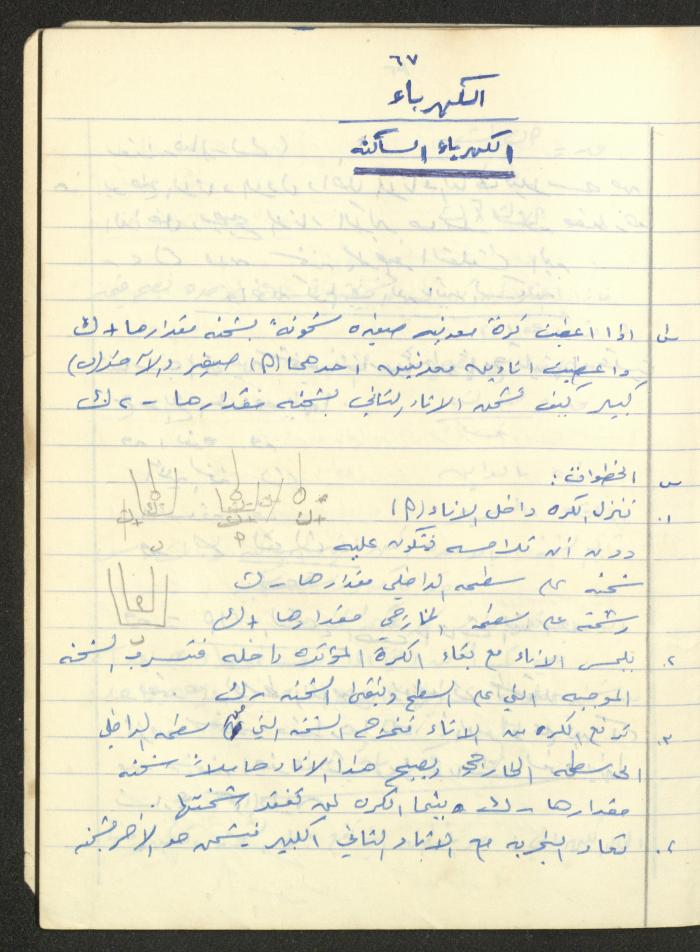 ٦٧
الكهرباء
الكهرباء الساكنة
س١ اذا اعطيت كرة معدنيه صغيره مشحونة بشحنه مقدارها + ك
واعطيت انائين معدنيين احدهما (م) صغير والآخر (ن)
كبير كيف تشحن الاناء الثاني بشحنه مقدارها - ٢ ك
الخطوات :
١. ننزل الكره داخل الاناء (م)
دون أن تلامسه فتتكون عليه
شحنه على سطحه الداخلي مقدارها - ك
وشحنه على سطحه الخارجي مقدارها + ك
٢. يلمس الاناء مع بقاء الكرة المؤثره داخله فتتسرب الشحنه
الموجبه التي على السطح وتبقى الشحنه - ك .
٣. ترفع الكره من الاناء فتخرج الشحنه التي على سطحه الداخلي
الى سطحه الخارجي ويصبح هذا الاناء حاملاً شحنه
مقدارها - ك بينما الكره لن تفقد شحنتها .
٤. تعاد التجربه مع الاناء الثاني الكبير فيشحن هو الآخر بشحنه